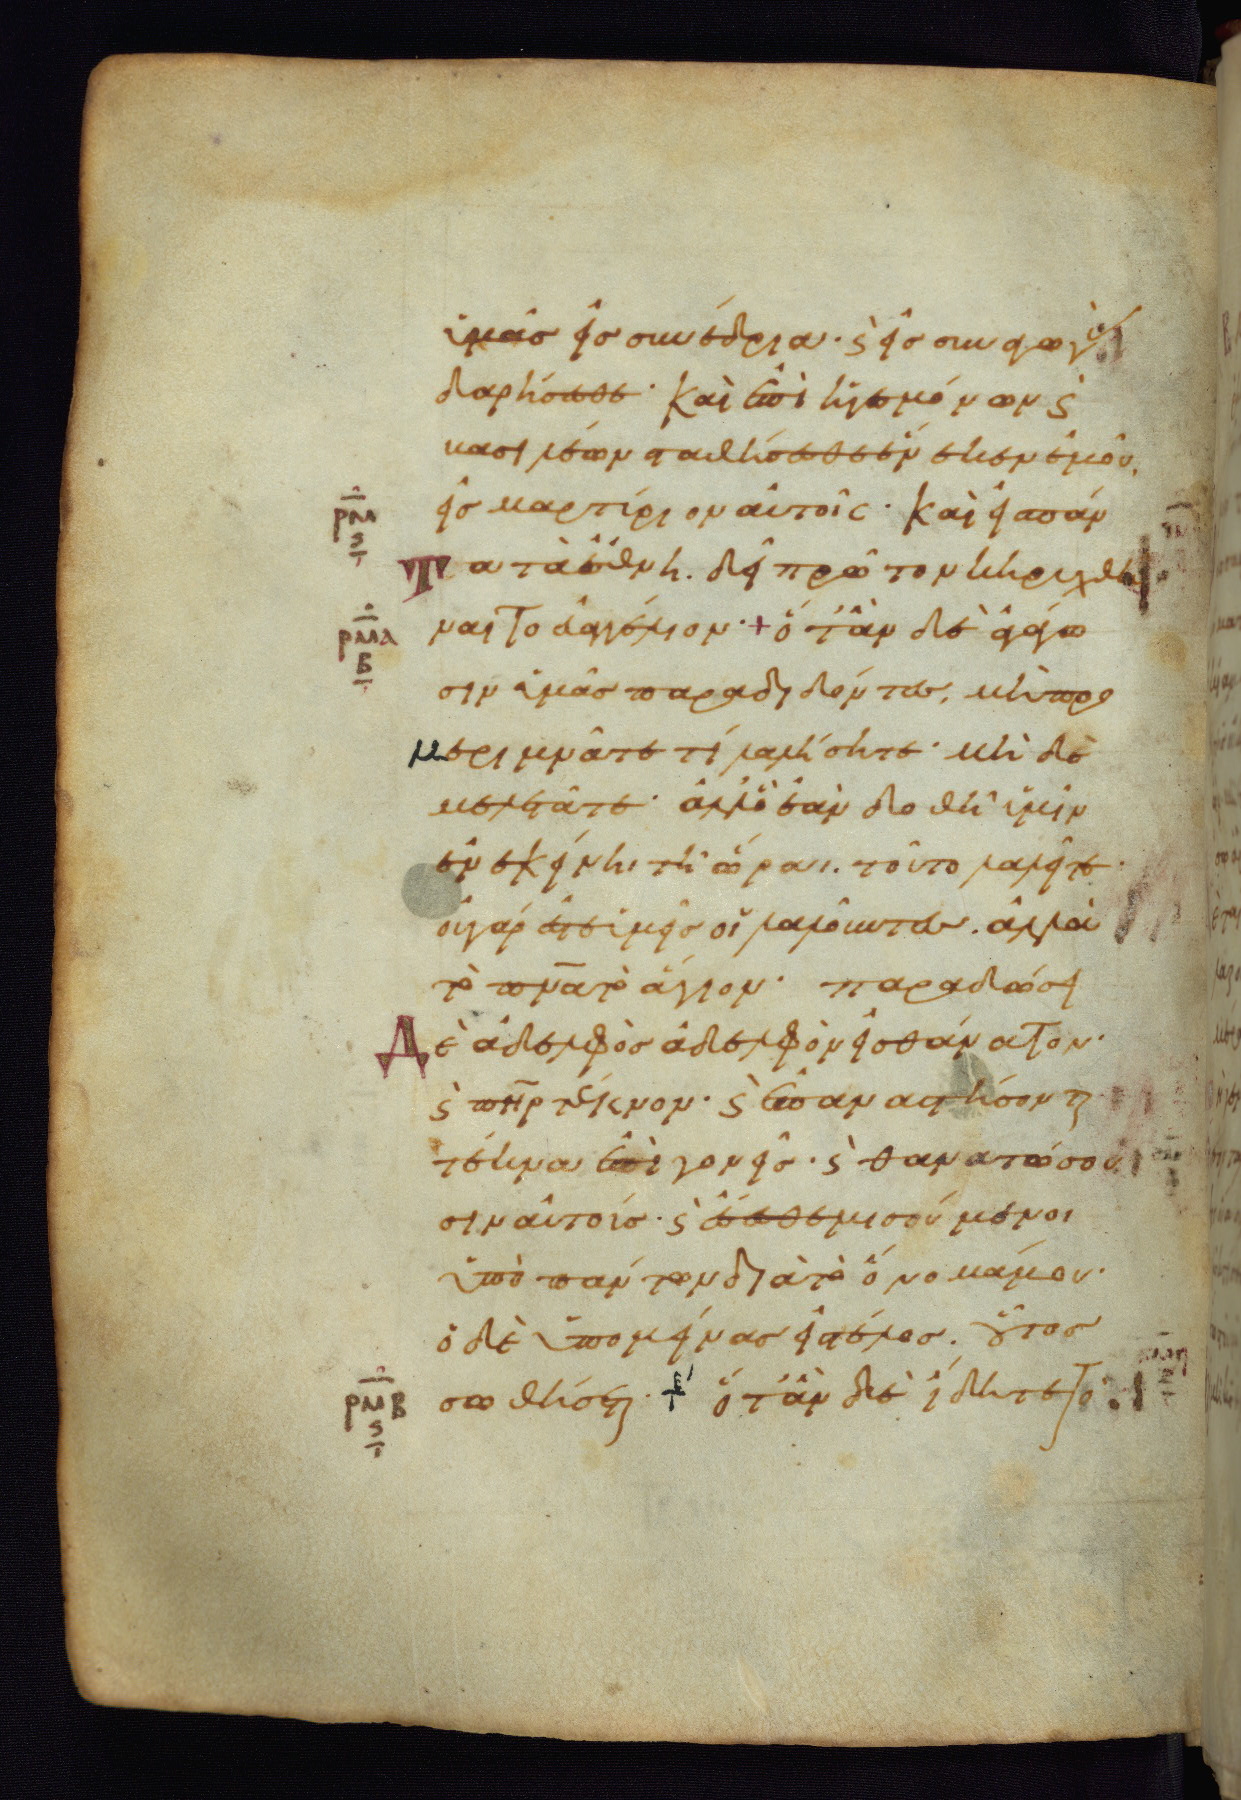 ὑμᾶς εἰς συνέδρια· ϛ εἰς συναγωγὰς
δαρήσεσθε· καὶ ἐπὶ ἡγεμόνων ϛ
βασιλέων σταθήσεσθε ἕνεκεν ἐμοῦ,
ρμ ϛ εἰς μαρτύριον αὐτοῖς· καὶ εἰς πάν
Τα τὰ ἔθνη. δεῖ πρῶτον κηρυχθῆ
ρμα β ναι το εὐαγγέλιον·+ ὅτἂν δὲ ἀγάγω
σιν ὑμᾶς παραδιδόντες, μὴ προ
μεριμνᾶτε τί λαλήσητε· μὴ δὲ
μελετᾶτε· ἀλλ' ὃ ἐὰν δοθῆ ὑμῖν
ἐν ἐκείνηι τῆ ὥραι. τοῦτο λαλεῖτε·
οὐ γάρ ἐστε ὑμεῖς οἱ λαλοῦντες. ἀλλὰ
τὸ π̅ν̅α̅ τὸ ἅγιον· παραδώσει
Δὲ ἀδελφὸς ἀδελφὸν εἰς θάνατον·
ϛ π̅η̅ρ̅ τέκνον· ϛ ἐπαναστήσονται
τέκνα ἐπὶ γονεῖς· ϛ θανατώσου
σιν αὐτούς· ϛ ἔσεσθε μισούμενοι
ὑπὸ πάντων διὰ τὸ ὄνομά μου·
ὁ δὲ ὑπομείνας εἰς τέλος. οὗτος
ρμβ ϛ σωθήσεται·+ ὅτἂν δὲ ἴδητε τὸ